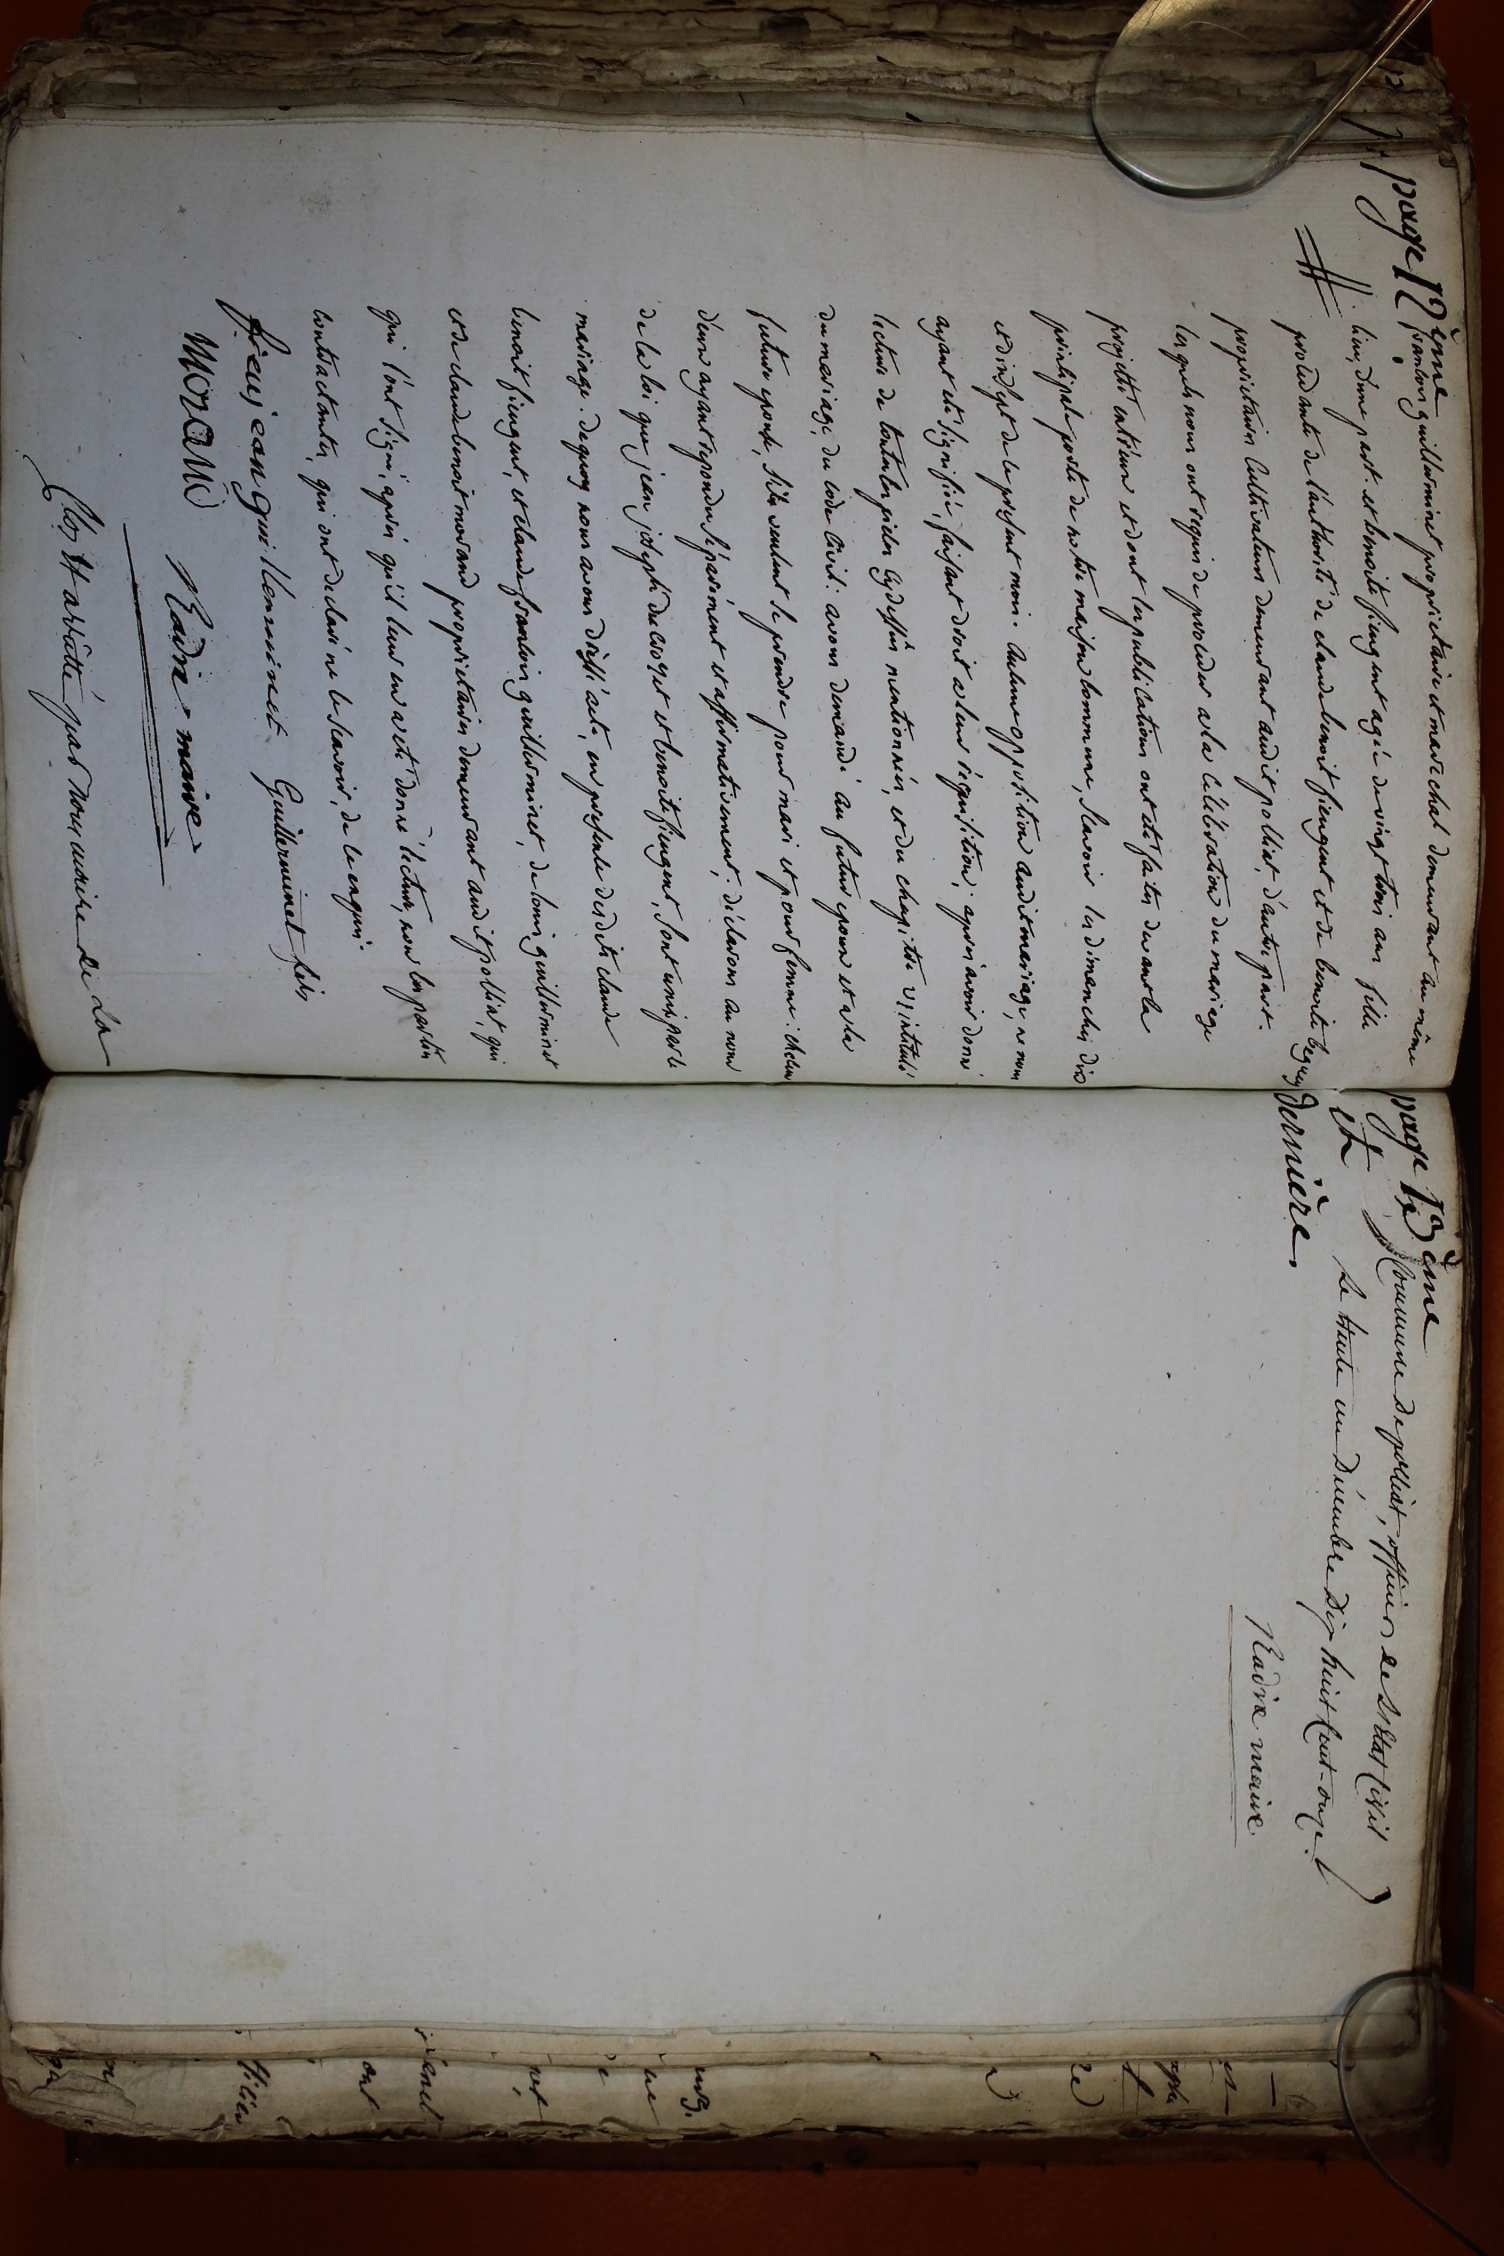 page 12ème
francois guillerminet proprietaire et marechal demeurant au même
lieu, d'une part. et benoite fiengent agée de vingt trois ans fille
procedante de l'authorité de claude benoit fiengent et de benoite beguy
proprietaires Cultivateurs demeurant audit polliat, d'autre part.
lesquels nous ont requis de proceder a la Célébration du mariage
projetté entr'eux et dont les publications ont été faites devant la
principale porte de notre maison commune, scavoir les dimanches dix
et dix sept de le présent mois. aucune opposition audit mariage, ne nous
ayant été signifiée, faisant droit a leur réquisition; aprés avoir donné
lecture de toutes les pieces Cydessus mentionnées, et du chapitre VI intitulé
du mariage, du code Civil: avons demandé au futur epoux et a la
future epouse, s'ils veulent se prendre pour mari et pour femme: chacun
d'eux ayant repondu séparément et affirmativement; déclarons au nom
de la loi que jean joseph ducroset et benoite fiengent, sont unis par le
mariage. de quoy nous avons dréssé acte, en presence desdits claude
benoit fiengent, et claude francois guillerminet, de louis guillerminet
et de claude benoit morand proprietaires demeurant audit polliat, qui
qui l'ont signé, aprés qu'il leur en a eté donné lecture, non les parties
contractantes, qui ont declaré ne le scavoir, de ce enquis.
jean guillerminet Guillerminet fils
MORAND Radix maire
Clos et arrêtté par nous maire de La
page 13ème
et
dernière.
Commune de polliat, officier de L'état Civil
Le trente un Décembre dix huit Cent-onze.
Radix maire